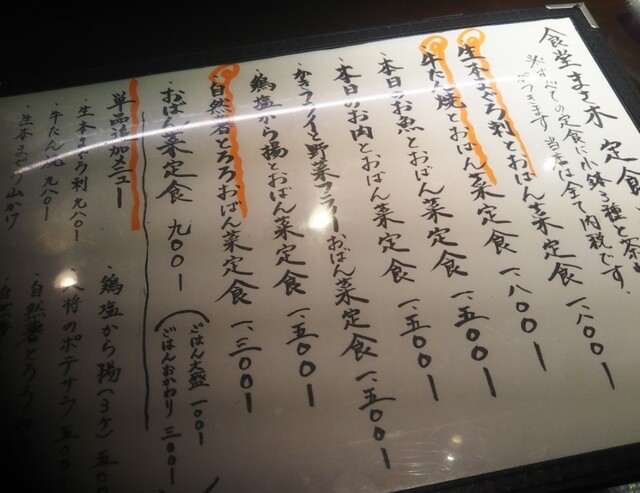 食堂 まさ木 定食
※すべての定食に小鉢3種と茶
つきます。当店は全て内税です。
生本まぐろ刺とおばん菜定食 一、八〇〇ー
牛たん焼とおばん菜定食 一、五〇〇ー
本日のお魚とおばん菜定食 一、五〇〇ー
本日のお肉とおばん菜定食 一、五〇〇ー
かきフライと野菜フライおばん菜定食 一、五〇〇ー
鶏塩から揚とおばん菜定食 一、五〇〇ー
自然薯とろろおばん菜定食 一、三〇〇ー
おばん菜定食 九〇〇ー
(ごはん大盛 一〇〇ー
ごはんおかわり 三〇〇ー)
単品追加メニュー
・生本まぐろ刺 九八〇ー
・牛たん焼 九八〇ー
・生本まぐろ山かけ
・鶏塩から揚(3ケ) 五
大将のポテサラ 五〇
・自然薯とろろ
・自然薯